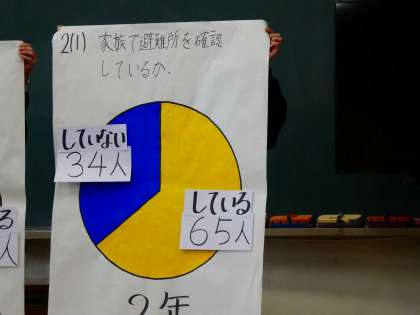 2(1) 家族で避難所を確認
しているか.
していない
34人
している
65人
る
人
2年